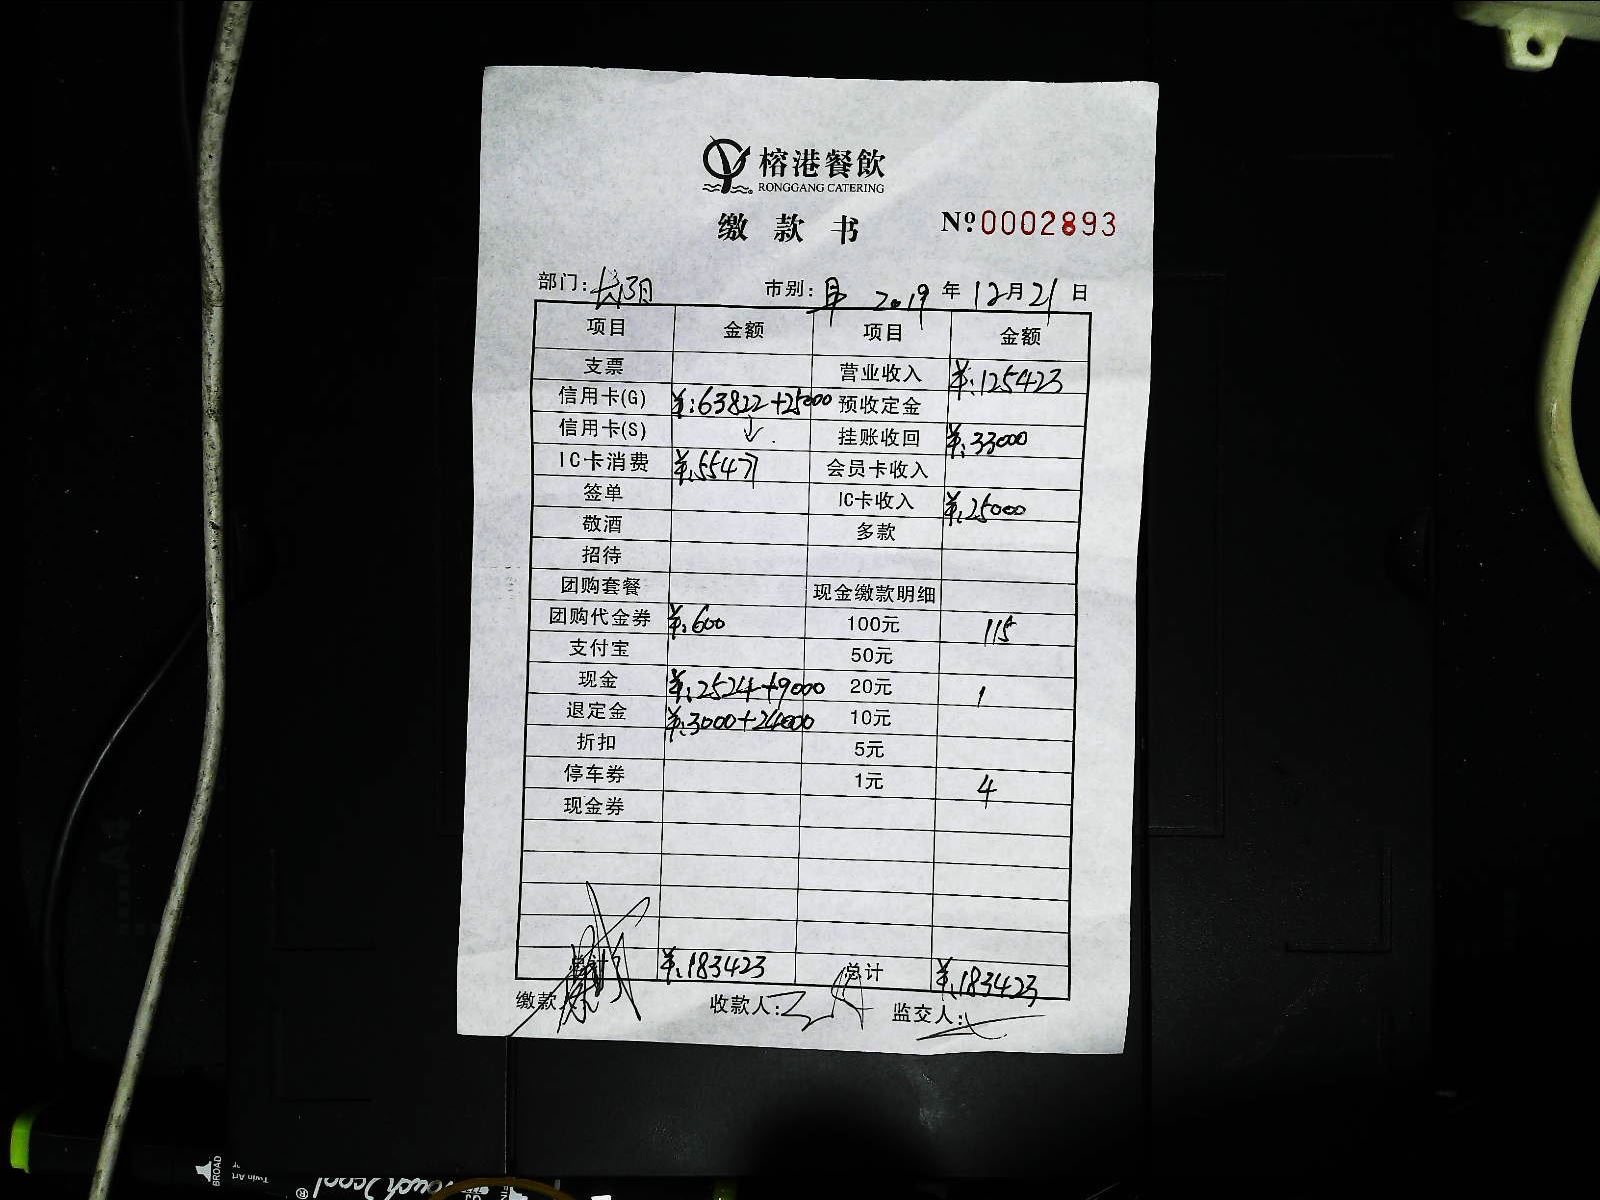 榕港餐飲
RONGGANG CATERING
缴款书 №0002893
部门: 市别: 2019 年 12月21日
项目 金额 项目 金额
支票 营业收入 ¥:125423
信用卡(G) ¥:63822+25000 预收定金
信用卡(S) 挂账收回 ¥:33000
IC卡消费 ¥:55477 会员卡收入
签单 IC卡收入 ¥:25000
敬酒 多款
招待
团购套餐 现金缴款明细
团购代金券 ¥:600 100元 115
支付宝 50元
现金 ¥:2524+9000 20元 1
退定金 ¥:3000+24000 10元
折扣 5元
停车券 1元 4
现金券
¥:183423 总计 ¥:183423
缴款 收款人: 监交人:
BROAD
Twin Art